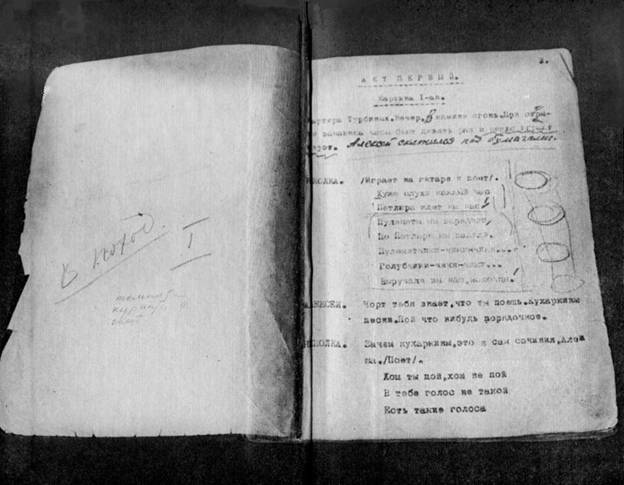 В поход.
I
2.
АКТ ПЕРВЫЙ.
Картина 1-ая.
артира Турбиных. Вечер. В камине огонь. При откры-
часы бьют девять раз и
Алексей склонился над бумагами.
ИКОЛКА. /Играет на гитаре и поет/.
Хуже слухи каждый час
Петлюра идет на нас!
Пулеметы мы зарядили,
По Петлюре мы палили,
Пулеметчики-чики-чики...
Голубчики-чики-чики...
Выручали вы нас, молодцы!
ЛЕКСЕЙ. Чорт тебя знает, что ты поешь. Кухаркины
песни. Пой что нибудь порядочное.
ИКОЛКА. Зачем кухаркины, это я сам сочинил, Алеш
ка. /Поет/.
Хош ты пой, хош не пой
В тебе голос не такой
Есть такие голоса